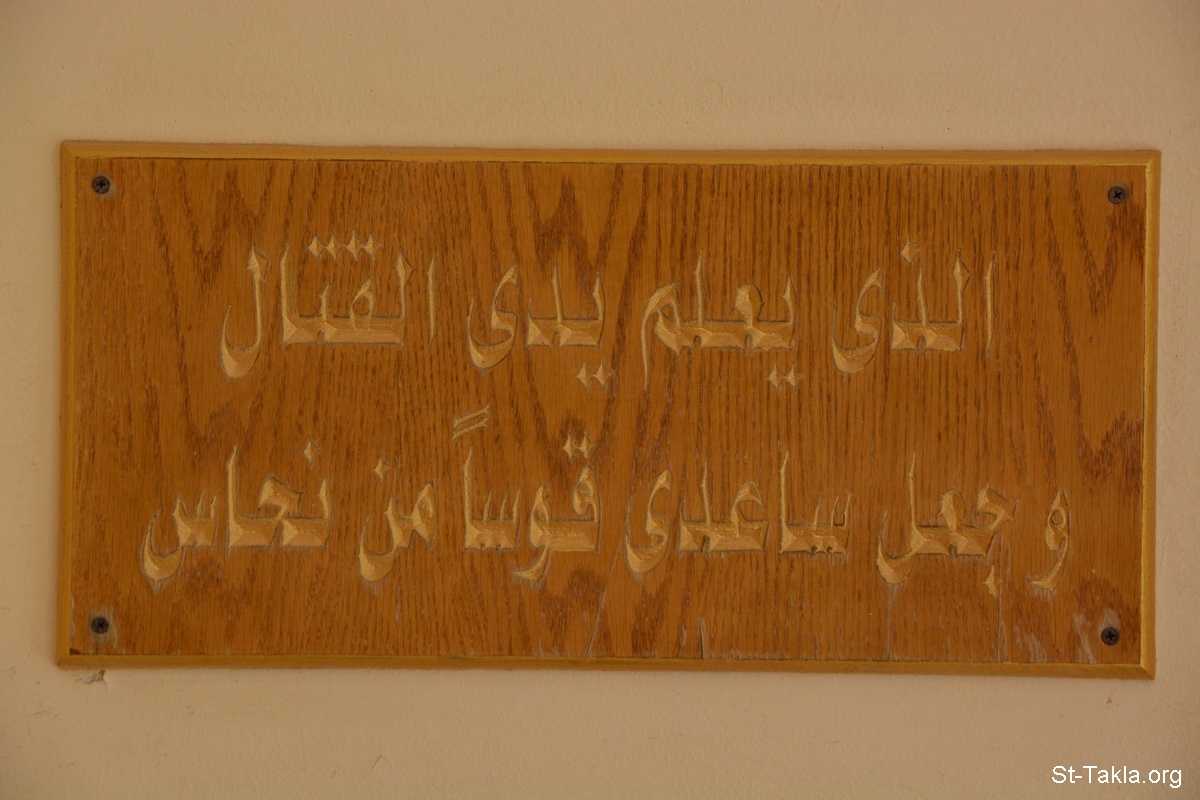 الذى يعلم يدى القتال
و جعل ساعدى قوساً من نحاس
St-Takla.org